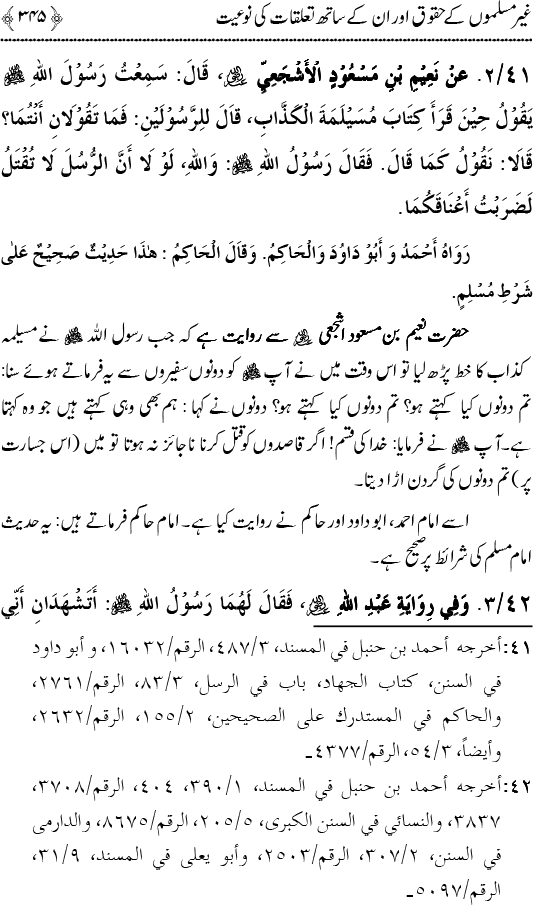 غیر مسلموں کے حقوق اور ان کے ساتھ تعلقات کی نوعیت ﴿۳۴۵﴾
٢/٤١. عَنْ نَعِيْمِ بْنِ مَسْعُوْدٍ الْأَشْجَعِيِّ ﷺ، قَالَ: سَمِعْتُ رَسُوْلَ اللهِ ﷺ
يَقُوْلُ حِيْنَ قَرَأَ كِتَابَ مُسَيْلَمَةَ الْكَذَّابِ، قَالَ لِلرَّسُوْلَيْنِ: فَمَا تَقُوْلَانِ أَنْتُمَا؟
قَالَا: نَقُوْلُ كَمَا قَالَ. فَقَالَ رَسُوْلُ اللهِ ﷺ: وَاللهِ، لَوْ لَا أَنَّ الرُّسُلَ لَا تُقْتَلُ
لَضَرَبْتُ أَعْنَاقَكُمَا.
رَوَاهُ أَحْمَدُ وَ أَبُوْ دَاوُدَ وَالْحَاكِمُ. وَقَالَ الْحَاكِمُ: هٰذَا حَدِيْثٌ صَحِيْحٌ عَلٰى
شَرْطِ مُسْلِمٍ.
حضرت نعیم بن مسعود اشجعی سے روایت ہے کہ جب رسول اللہ ﷺ نے مسیلمہ
کذاب کا خط پڑھ لیا تو اس وقت میں نے آپ ﷺ کو دونوں سفیروں سے یہ فرماتے ہوئے سنا:
تم دونوں کیا کہتے ہو؟ تم دونوں کیا کہتے ہو؟ دونوں نے کہا: ہم بھی وہی کہتے ہیں جو وہ کہتا
ہے۔ آپ ﷺ نے فرمایا: خدا کی قسم! اگر قاصدوں کو قتل کرنا ناجائز نہ ہوتا تو میں (اس جسارت
پر) تم دونوں کی گردن اڑا دیتا۔
اسے امام احمد، ابو داود اور حاکم نے روایت کیا ہے۔ امام حاکم فرماتے ہیں: یہ حدیث
امام مسلم کی شرائط پر صحیح ہے۔
٣/٤٢. وَفِي رِوَايَةِ عَبْدِ اللهِ، فَقَالَ لَهُمَا رَسُوْلُ اللهِ ﷺ: أَتَشْهَدَانِ أَنِّي
٤١: أخرجه أحمد بن حنبل في المسند، ٤٨٧/٣، الرقم/١٦٠٣٢، و أبو داود
في السنن، كتاب الجهاد، باب في الرسل، ٨٣/٣، الرقم/٢٧٦١،
والحاكم في المستدرك على الصحيحين، ١٥٥/٢، الرقم/٢٦٣٢،
وأيضاً، ٥٤/٣، الرقم/٤٣٧٧۔
٤٢: أخرجه أحمد بن حنبل في المسند، ٣٩٠/١، ٤٠٤، الرقم/٣٧٠٨،
٣٨٣٧، والنسائي في السنن الكبرى، ٢٠٥/٥، الرقم/٨٦٧٥، والدارمى
في السنن، ٣٠٧/٢، الرقم/٢٥٠٣، وأبو يعلى في المسند، ٣١/٩،
الرقم/٥٠٩٧۔